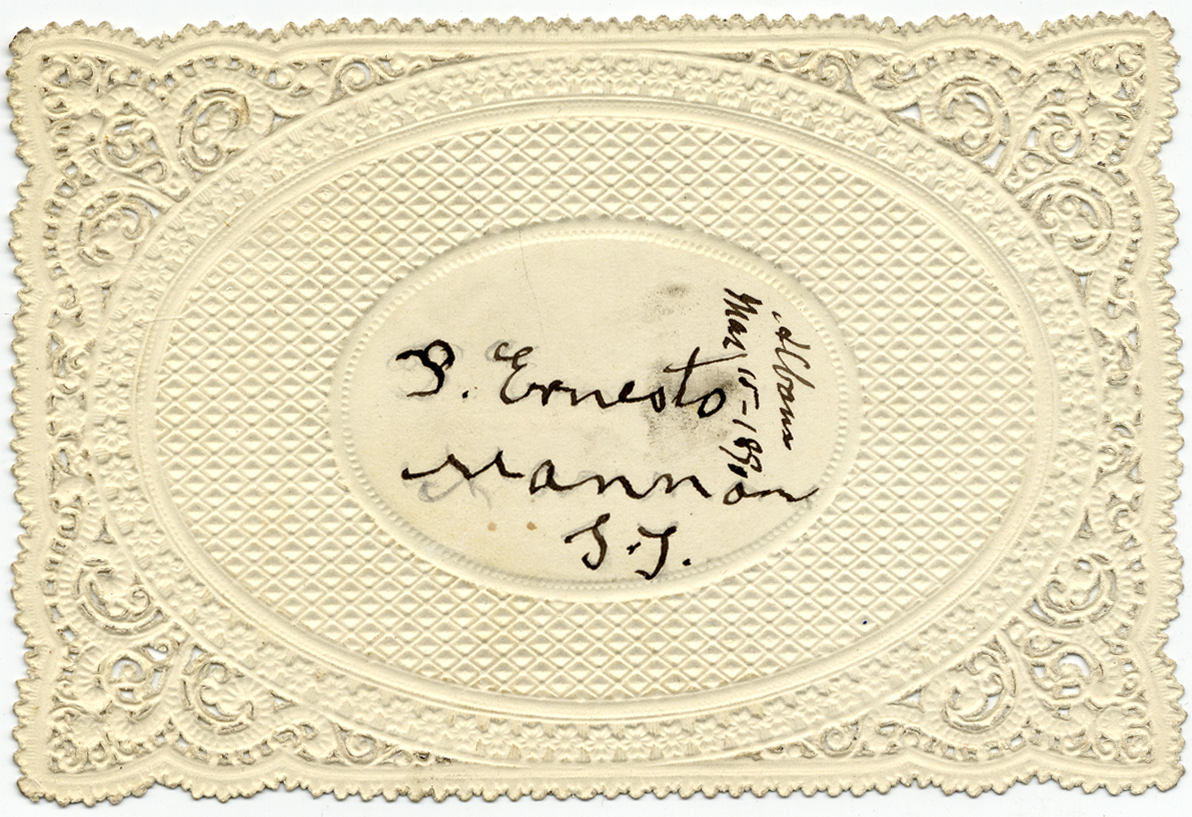 S. Ernesto
Mannon
S.J.
Albans
Mar 15-1890